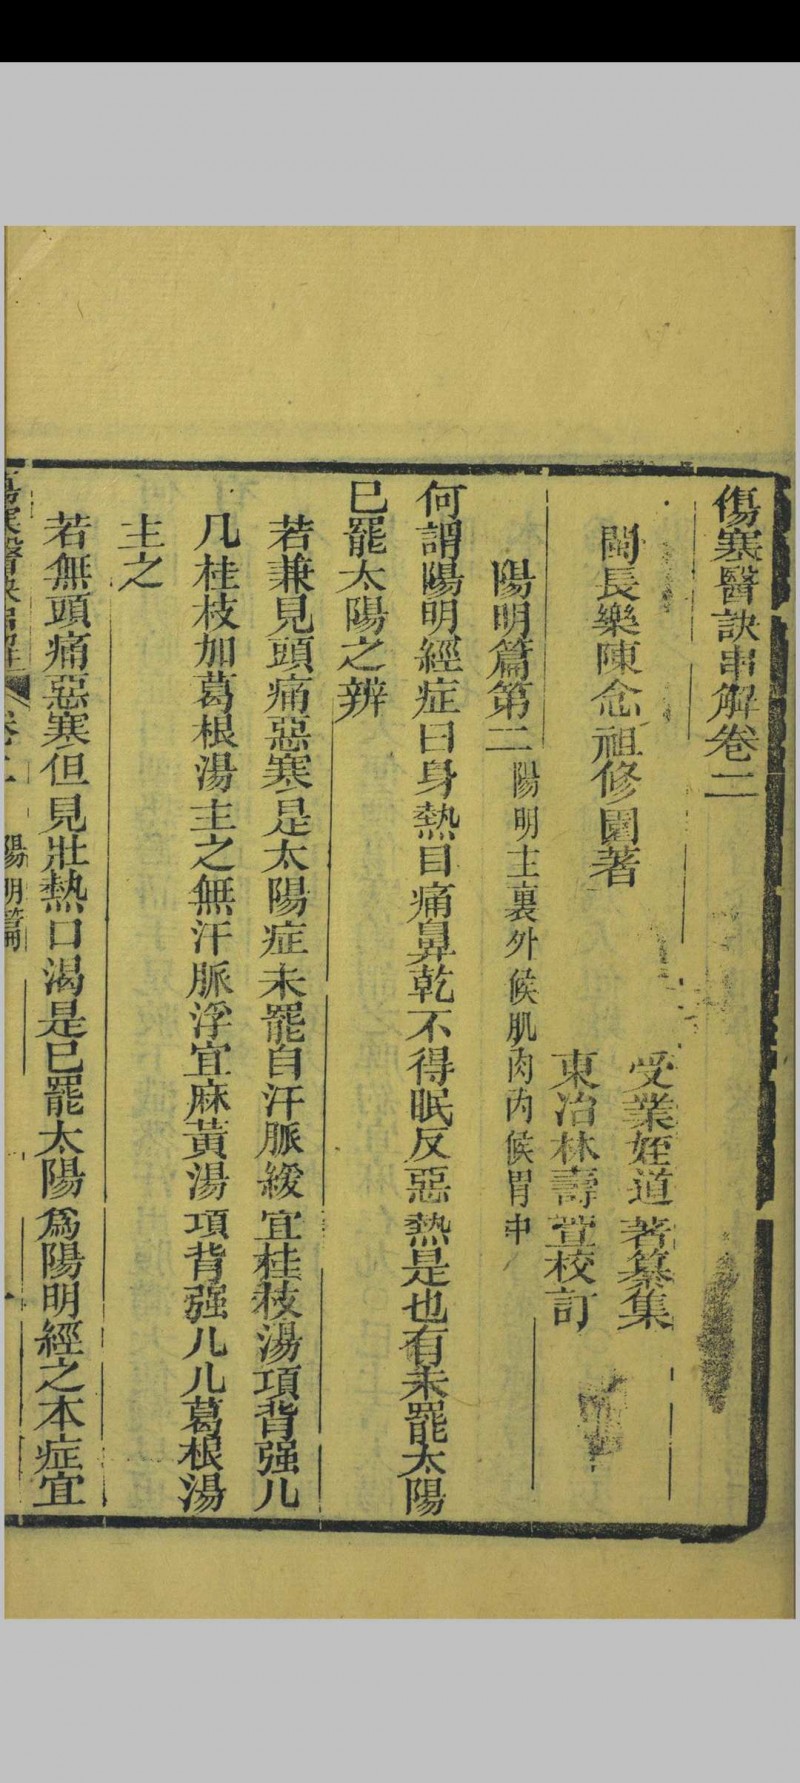 傷寒醫訣串解卷二
閩長樂陳念祖修園著
受業姪道著纂集
東冶林壽萱校訂
陽明篇第二陽明主裏外候肌肉內候胃中
何謂陽明經症曰身熱目痛鼻乾不得眠反惡熱是也有未罷太陽
已罷太陽之辨
若兼見頭痛惡寒是太陽症未罷自汗脈緩宜桂枝湯項背强几
几桂枝加葛根湯主之無汗脈浮宜麻黃湯項背强几几葛根湯
主之
若無頭痛惡寒但見壯熱口渴是已罷太陽爲陽明經之本症宜
傷寒醫訣串解 卷二 陽明篇